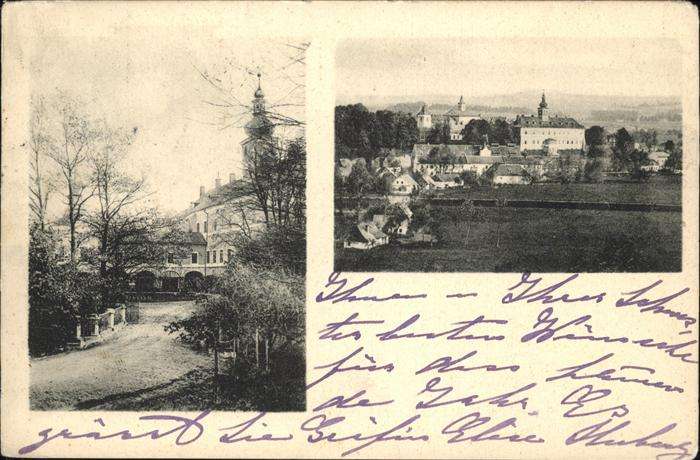 Ihnen u Ihrer Schwes
ter besten Wünsche
für das kommen
de Jahr Es
grüsst Sie Gräfin Elise